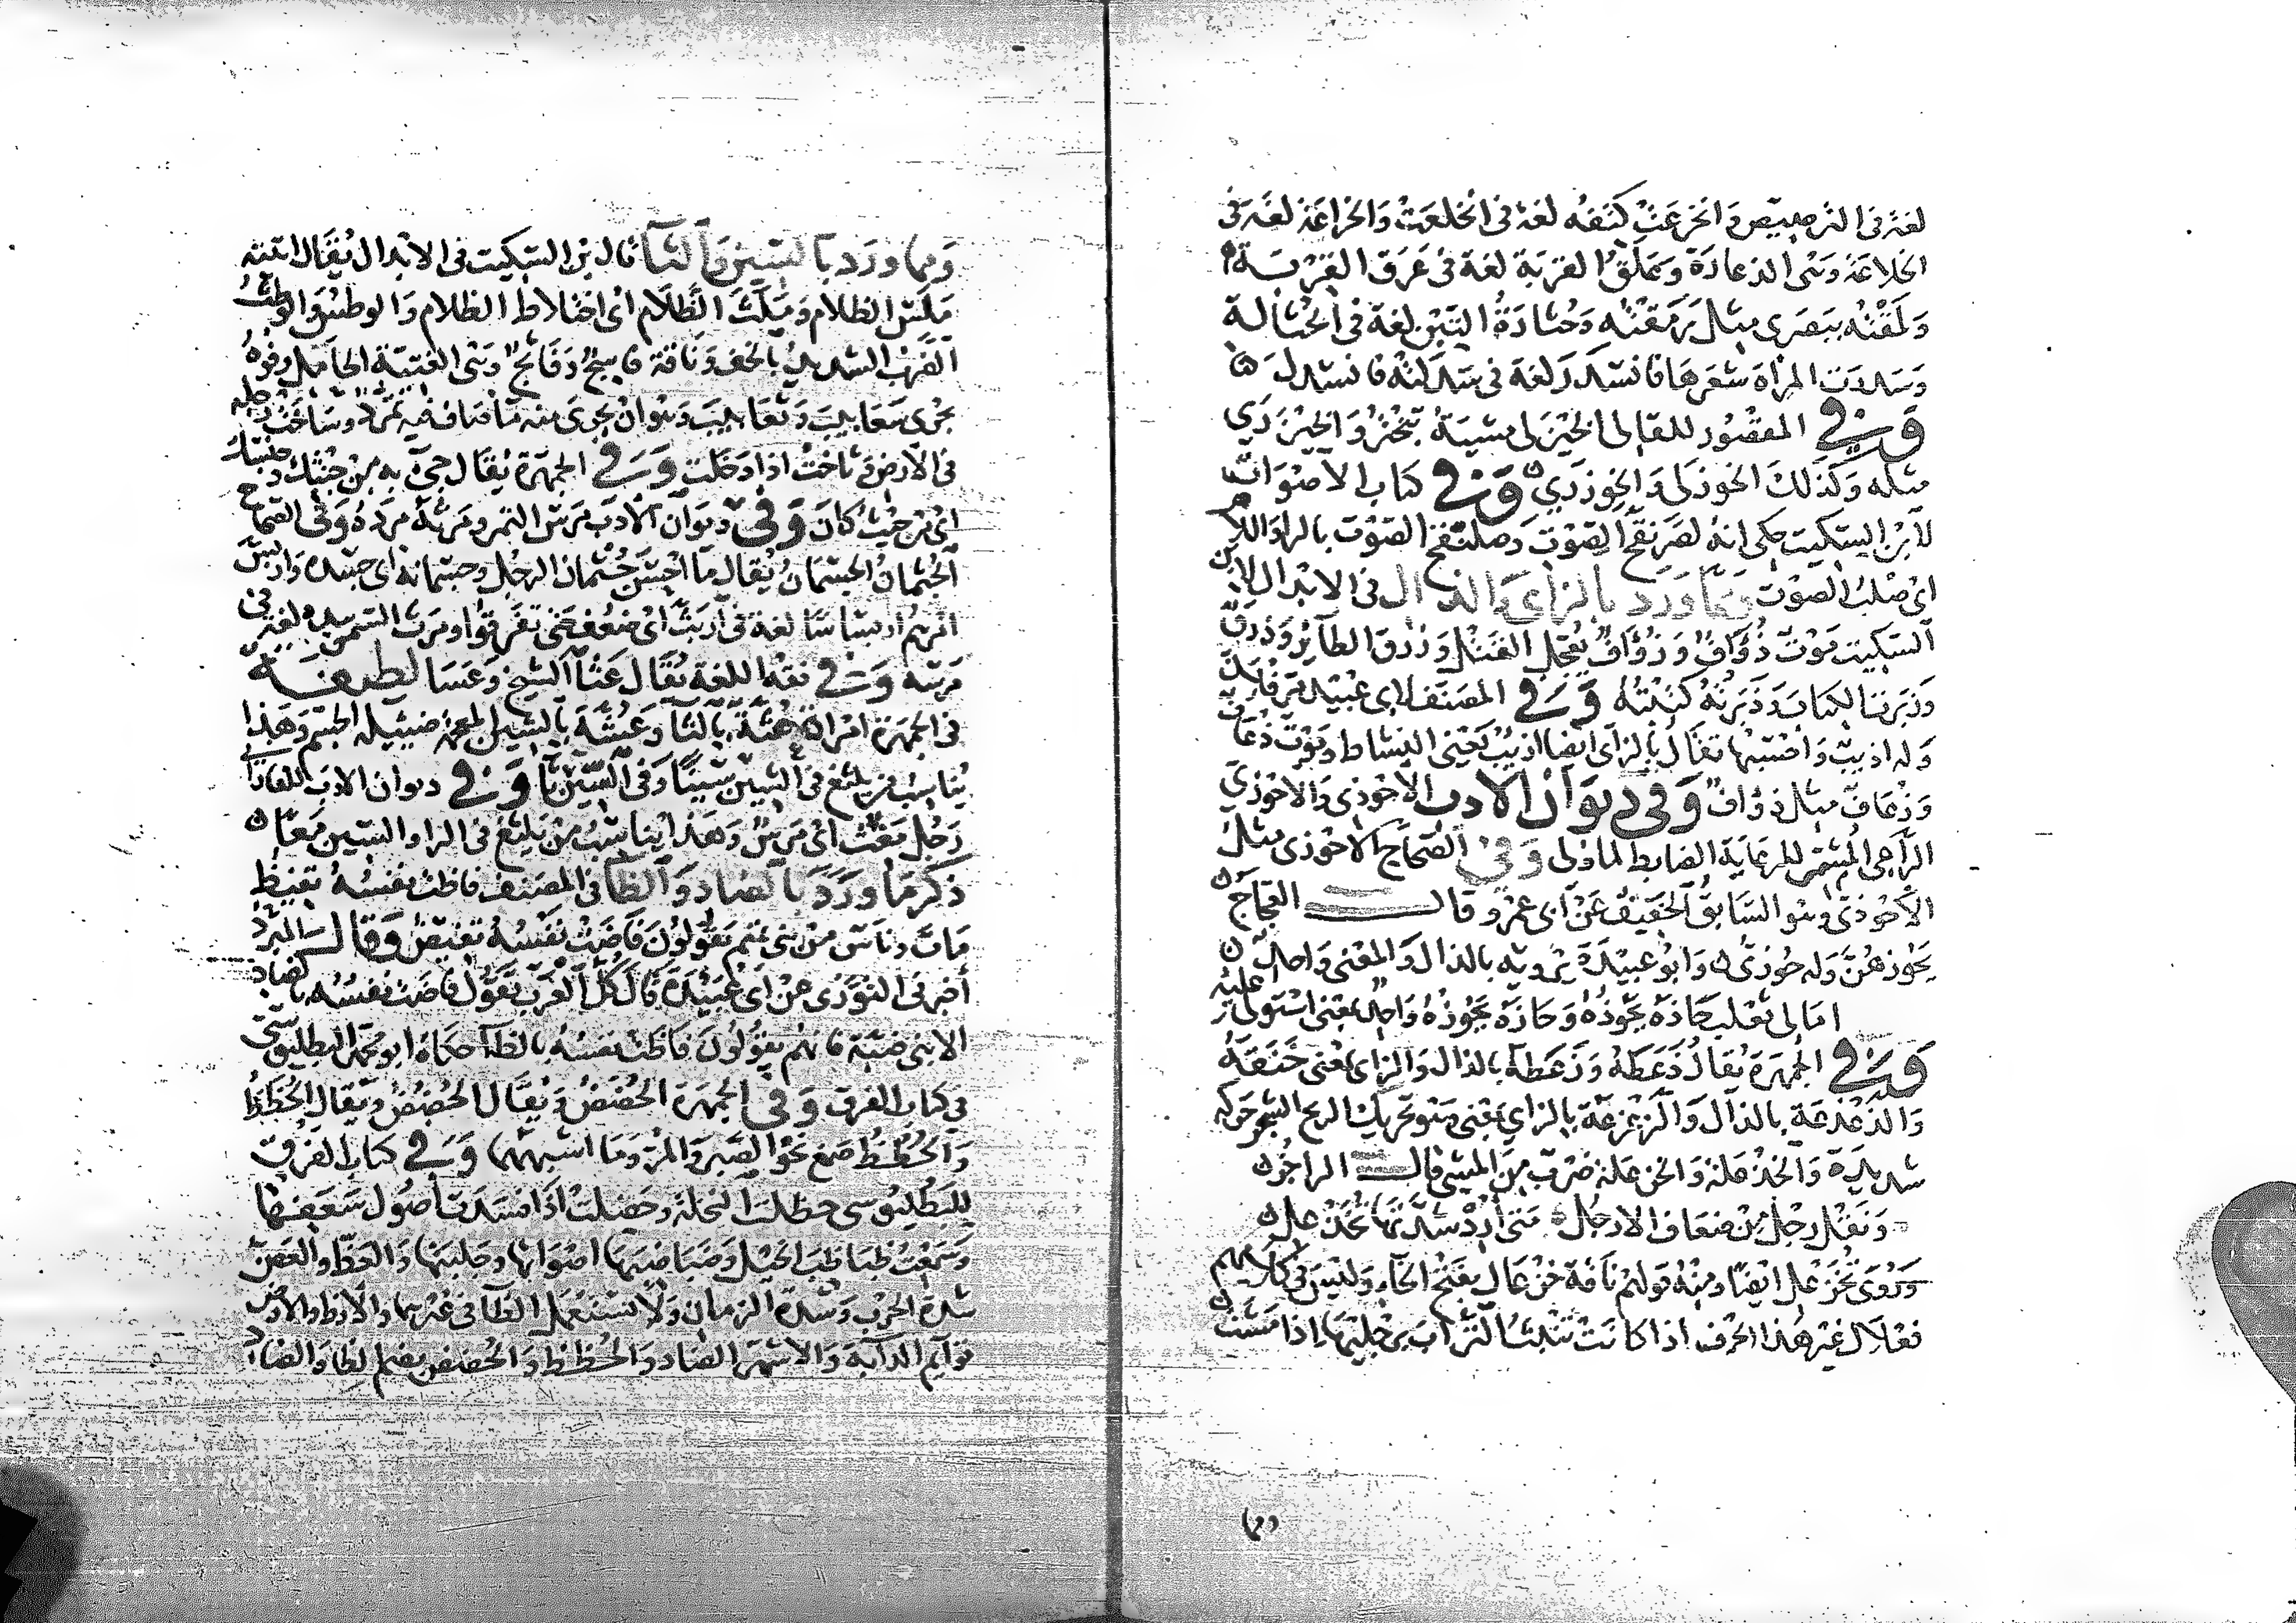 لغة في الترصيص وانخرعت كتفه لغة في انخلعت والخراعة لغة في
الخلاعة وهى الدعارة وعلق القربة لغة في عرق القربة
ولمقته ببصرى مثل رمقته وحثارة التبن لغة في الحثالة
وسدرت المرأة شعرها فانسدر لغة في سدلته فانسدل
وفي المقصور للقالى الخيزلى مشية تبختر والخيزرى
مثله وكذلك الخوزلى والخوزرى وفي كتاب الأصوات
لابن السكيت حكى انه لصرنقح الصوت وصلنقح الصوت بالراء واللام
اى صلب الصوت ومما ورد بالزاى والذال في الابدال لابن
السكيت موت ذؤاف وزؤاف يعجل القتل وزرق الطائر وذرق
وزبرت الكتاب وذبرته كتبته وفي المصنف لابى عبيد مر فلان
وله اذيب واحسبها تقال بالزاى ايضا ازيب يعنى النشاط وموت ذعاف
وزعاف مثل ذؤاف وفي ديوان الادب الاحوذى والاحوزي
الراعى المشمر للرعاية الضابط لما ولى وفي الصحاح الاحوزى مثل
الأحوذى وهو السابق الخفيف عن ابى عمرو قال العجاج
يحوزهن وله حوزى وابو عبيدة يرويه بالذال والمعنى واحد
امالى ثعلب حاذه يحوذه وحازه يحوزه واحد بمعنى استولى عليه
وفي الجمهرة يقال ذعطه وزعطه بالذال والزاى بمعنى خنقه
والذعذعة بالذال والزعزعة بالزاي بمعنى وهو تحريك الريح الشجر حركة
شديدة والخذعلة والخزعلة ضرب من المشى قال الراجز
ونقل رجل من ضعاف الارجل متى أرد شدتها تخذعل
وروى تخزعل ايضا ومنه قولهم ناقة خزعال بفتح الخاء وليس في كلامهم
فعلال غير هذا الحرف اذا كانت تنبث التراب برجليها اذا مشت
ومما ورد بالسين والثا قال بن السكيت في الابدال يقال اتيته
ملس الظلام وملث الظلام اى اختلاط الظلام والوطس والوطث
الضرب الشديد بالخف وناقة فاسج وفاثج وهى الفتية الحامل وفوه
يجرى سعابيب وثعابيب وهو ان يجرى منه ما صاف فيه تمدد وساخت رجله
في الارض وثاخت اذا دخلت وفي الجمهرة يقال جئ به من حثك وحسك
اى من حيث كان وفي ديوان الادب مرس التمر ومرثه مرده وفي الصحاح
الجثمان الجسمان يقال ما احسن جثمان الرجل وجسمانه اى جسده واربس
امرهم اربساسا لغة في اربث اى ضعف حتى تفرقوا ومرث التمر بيده لغة في
مرسه وفي فقه اللغة يقال عثا الشيخ وعسا لطيفة
في الجمهرة امراة عثة بالثا وعشة بالشين المعجمة ضئيلة الجسم وهذا
يناسب من يلثغ في الشين سينا وفي السين ثا وفي ديوان الادب للفارابى
رجل مغث اى مرس وهذا يناسب من يلثغ في الراء والسين معا
ذكر ما ورد بالضاد والظا في المصنف فاظت نفسه تفيظ
مات وناس من بنى تميم يقولون فاضت نفسه تفيض وقال المبرد
أخبرنى التوزى عن ابى عبيدة قال كل العرب تقول فاضت نفسه بالضاد
الا بنى ضبة فانهم يقولون فاظت نفسه بالظا حكاه ابو محمد البطليوسى
في كتاب الفرق وفي الجمهرة الحضض ويقال الحضض ويقال الحظظ
والحظظ صمغ نحو الصبر والمر وما اشبههما وفي كتاب الفرق
للبطليوسى حظلت النخلة وحضلت اذا فسدت اصول سعفها
وسمعت ظباظب الخيل وضباضبها اصواتها وجلبتها والعظ والعض
شدة الحرب وشدة الزمان ولا تستعمل الظا في غيرهما والارظ والارض
قوايم الدابة والاشهر الضاد والحظظ والحضض بضم الظا والضاد